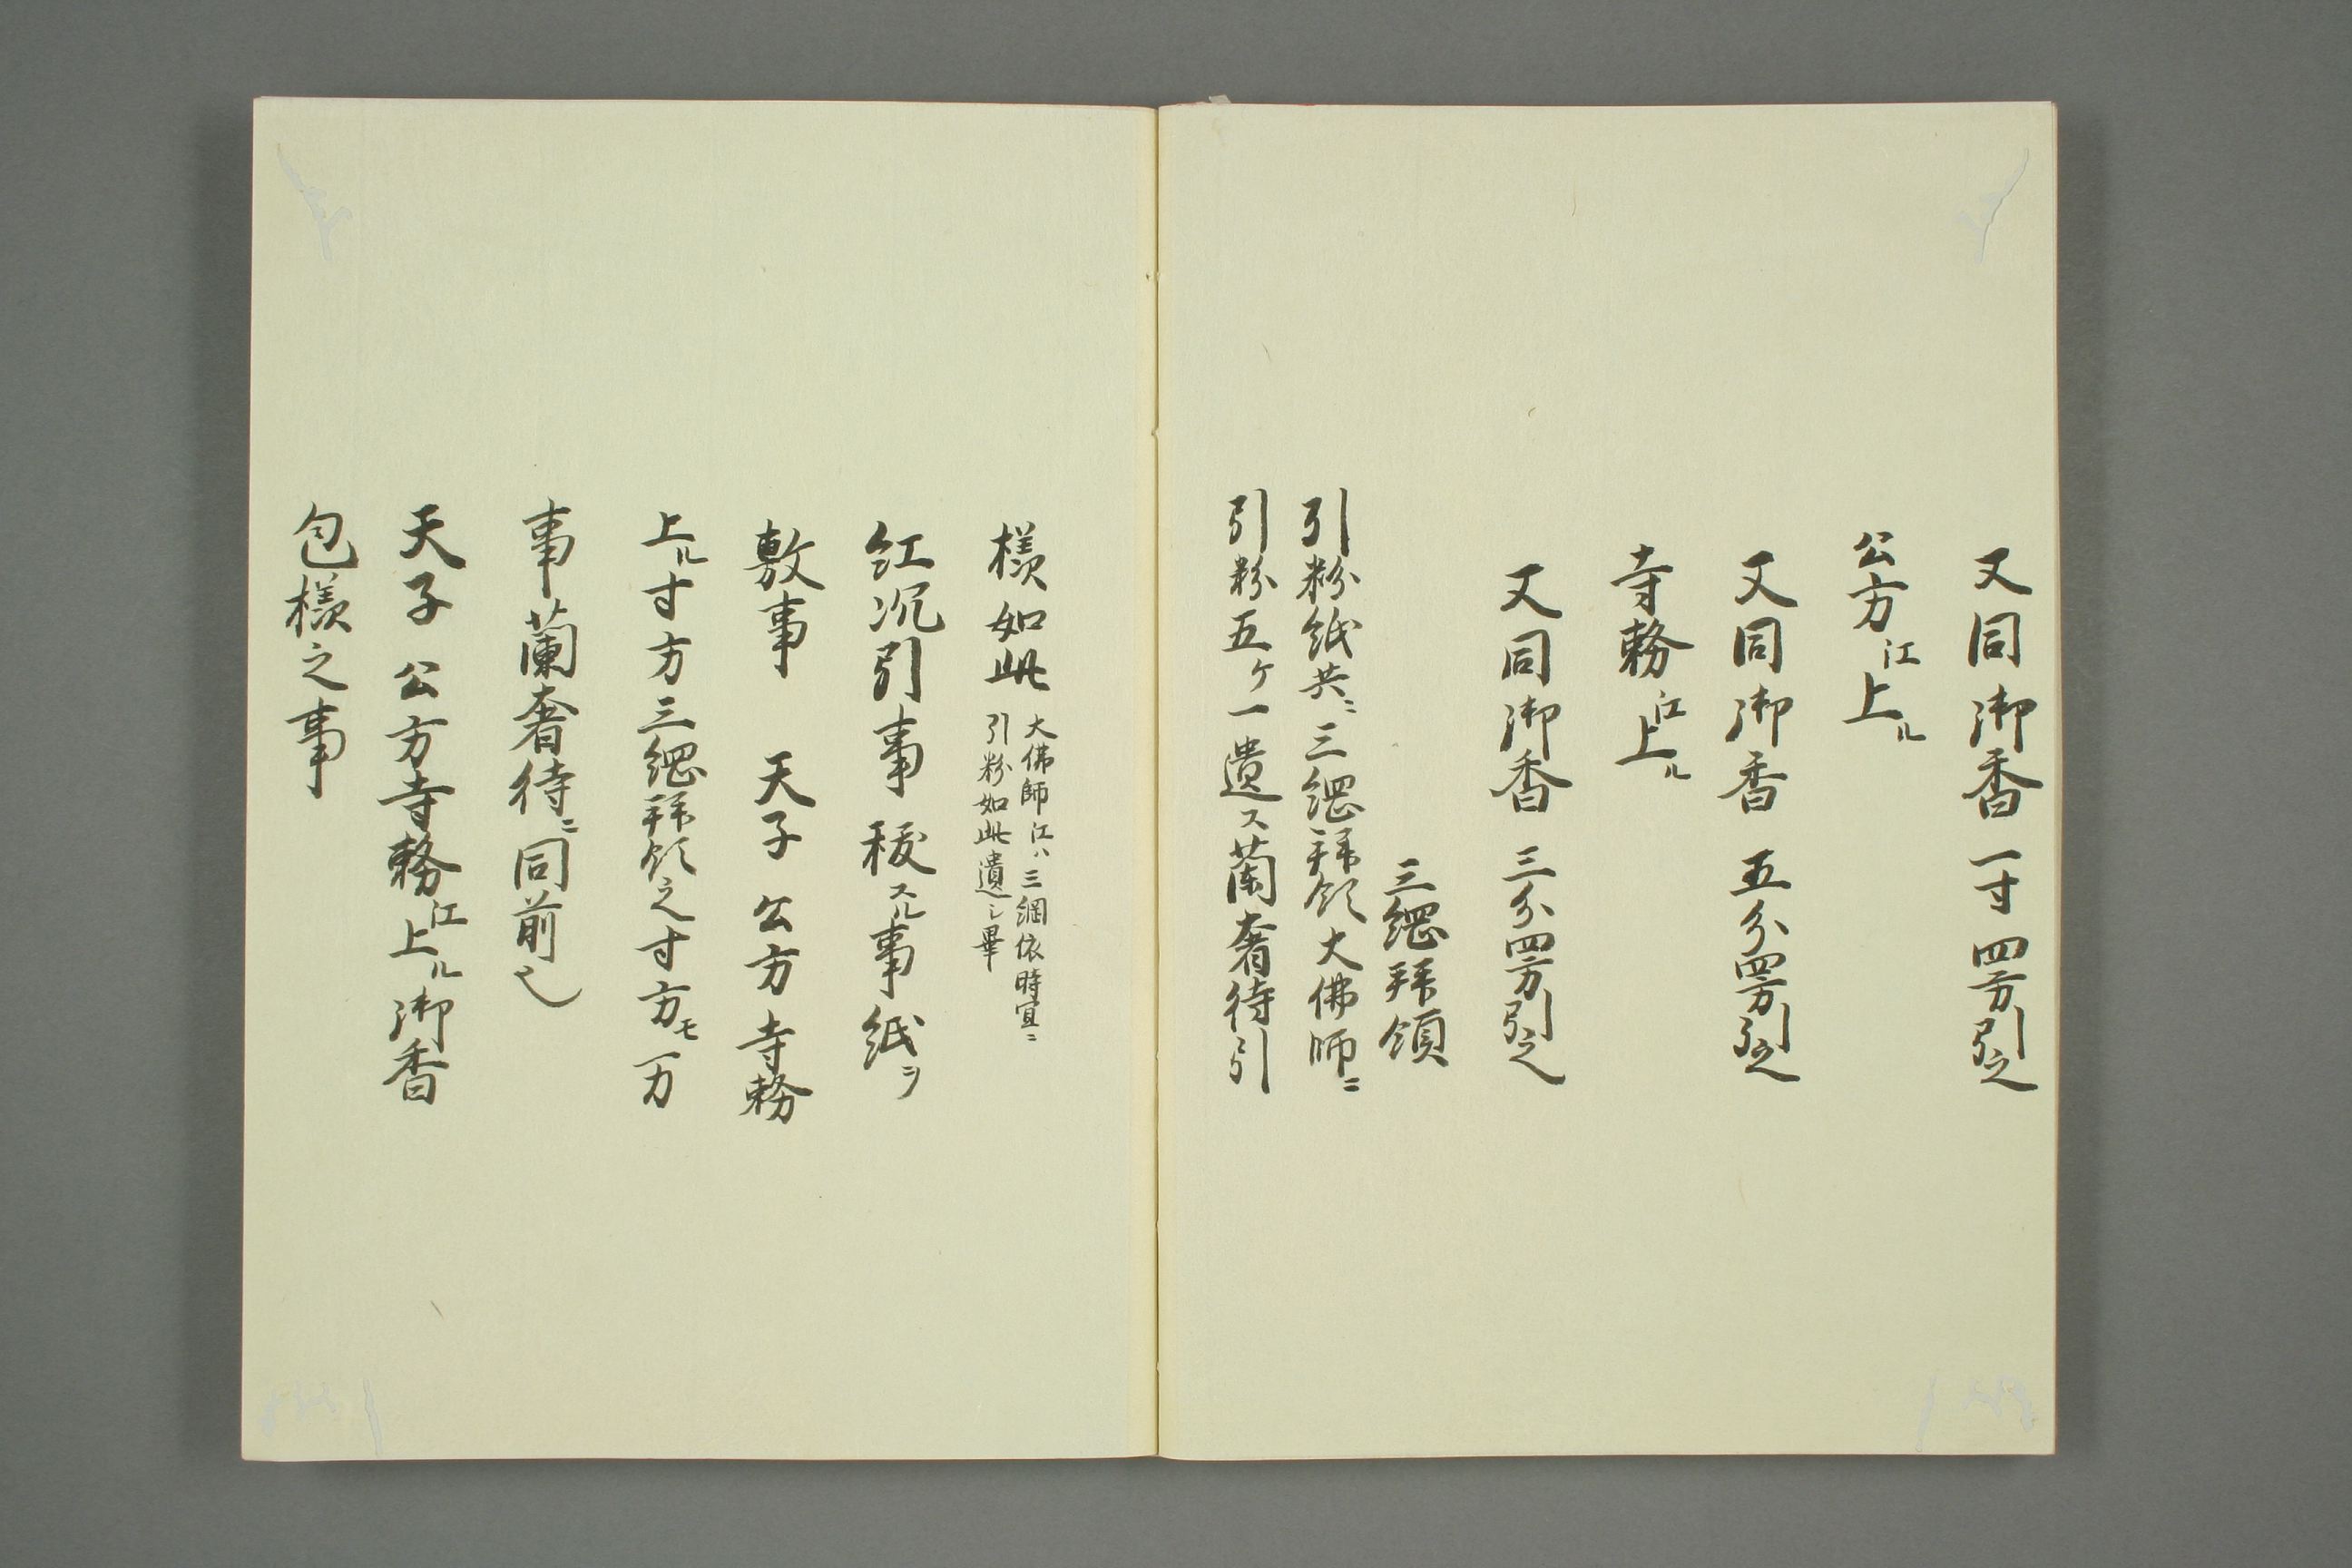 又同御香 一寸四方引之
公方江上ル
又同御香 五分四方引之
寺務江上ル
又同御香 三分四方引之
三綱拜領
引粉紙共ニ三綱拜領大佛師ニ
引粉五ケ一遣ス蘭奢待引
樣如此
大佛師江ハ三綱依時宜ニ
引粉如此遣シ畢
紅沉引事 秡スル事紙ヲ
敷事 天子 公方 寺務
上ル寸方三綱拜領之寸方モ万
事蘭奢待ニ同前也
天子 公方寺務江上ル御香
包樣之事